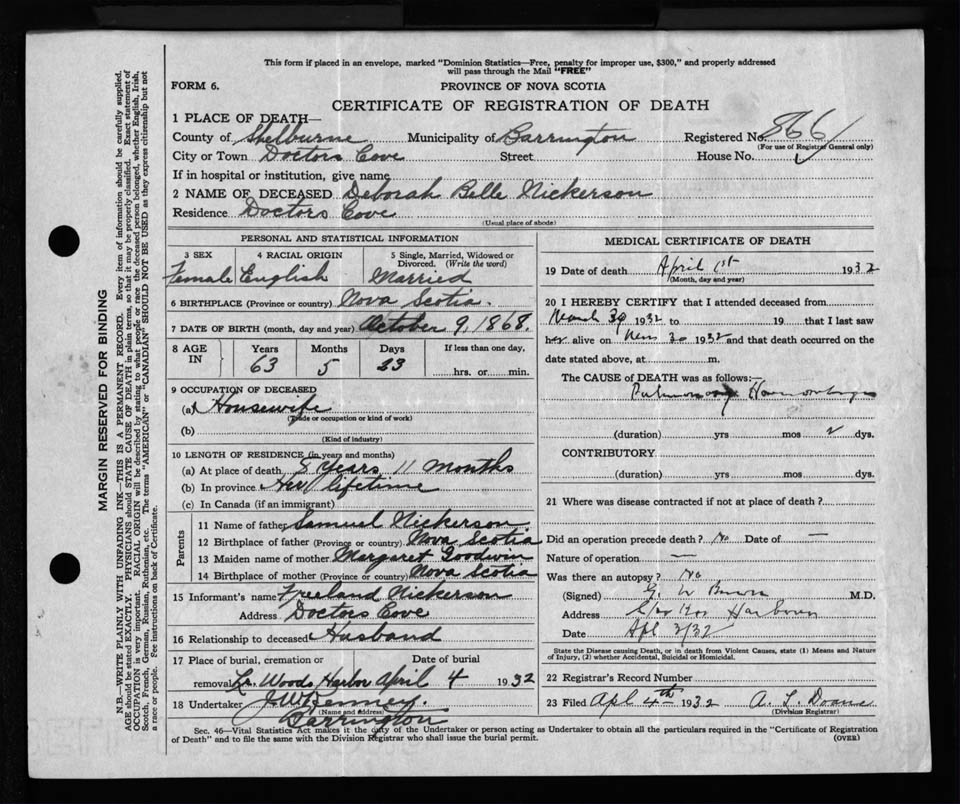 This form if placed in an envelope, marked "Dominion Statistics—Free, penalty for improper use, $300," and properly addressed
will pass through the Mail "FREE"
FORM 6.
PROVINCE OF NOVA SCOTIA
CERTIFICATE OF REGISTRATION OF DEATH
1 PLACE OF DEATH—
County of Shelburne Municipality of Barrington Registered No. 866
(For use of Registrar General only)
City or Town Doctors Cove Street House No.
If in hospital or institution, give name
2 NAME OF DECEASED Deborah Belle Nickerson
Residence Doctors Cove
(Usual place of abode)
PERSONAL AND STATISTICAL INFORMATION
3 SEX 4 RACIAL ORIGIN 5 Single, Married, Widowed or
Divorced. (Write the word)
Female English Married
6 BIRTHPLACE (Province or country) Nova Scotia.
7 DATE OF BIRTH (month, day and year) October 9, 1868.
8 AGE IN Years Months Days If less than one day,
63 5 23 hrs. or min.
9 OCCUPATION OF DECEASED
(a) Housewife
(Trade or occupation or kind of work)
(b)
(Kind of industry)
10 LENGTH OF RESIDENCE (in years and months)
(a) At place of death 8 years 11 months
(b) In province Her lifetime
(c) In Canada (if an immigrant)
Parents
11 Name of father Samuel Nickerson
12 Birthplace of father (Province or country) Nova Scotia
13 Maiden name of mother Margaret Goodwin
14 Birthplace of mother (Province or country) Nova Scotia
15 Informant's name Freeland Nickerson
Address Doctors Cove
16 Relationship to deceased Husband
17 Place of burial, cremation or Date of burial
removal Lr. Woods Harbor April 4 1932
18 Undertaker J. W. Kenney.
(Name and address)
Barrington
MEDICAL CERTIFICATE OF DEATH
19 Date of death April 1st 1932
(Month, day and year)
20 I HEREBY CERTIFY that I attended deceased from
March 30 1932 to 19 that I last saw
her alive on 30 1932 and that death occurred on the
date stated above, at m.
The CAUSE OF DEATH was as follows:—
Pulmonary Haemorrhage
(duration) yrs mos 2 dys.
CONTRIBUTORY
(duration) yrs mos dys.
21 Where was disease contracted if not at place of death?
Did an operation precede death? No Date of —
Nature of operation —
Was there an autopsy? No
(Signed) M.D.
Address Harbour
Date Apl 3/32
State the Disease causing Death, or in death from Violent Causes, state (1) Means and Nature
of Injury, (2) whether Accidental, Suicidal or Homicidal.
22 Registrar's Record Number
23 Filed Apl 4th 1932 A. L. Doane
(Division Registrar)
Sec. 46—Vital Statistics Act makes it the duty of the Undertaker or person acting as Undertaker to obtain all the particulars required in the "Certificate of Registration
of Death" and to file the same with the Division Registrar who shall issue the burial permit.
(OVER)
MARGIN RESERVED FOR BINDING
N.B.—WRITE PLAINLY WITH UNFADING INK—THIS IS A PERMANENT RECORD. Every item of information should be carefully supplied.
AGE should be stated EXACTLY. PHYSICIANS should STATE CAUSE OF DEATH in plain terms, so that it may be properly classified. Exact statement of
OCCUPATION is very important. RACIAL ORIGIN will be described by stating to what people or race the deceased person belonged, whether English, Irish,
Scotch, French, German, Russian, Ruthenian, etc. The terms "AMERICAN" or "CANADIAN" SHOULD NOT BE USED as they express citizenship but not
a race or people. See instructions on back of Certificate.